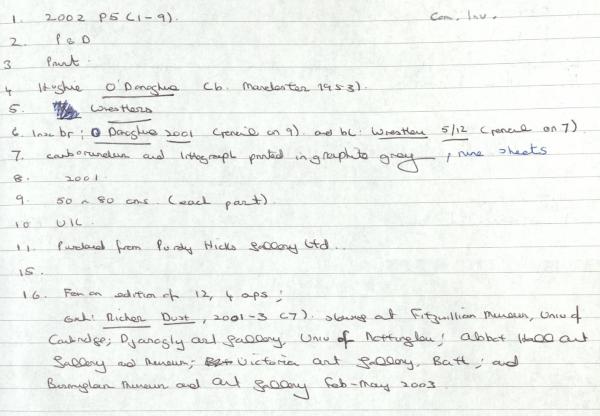 1. 2002 P5 (1-9). Com. Inv.
2. P & D
3 Print.
4 Hughie O'Donoghue (b. Manchester 1953).
5. Wrestlers
6. Insc br; O Donoghue 2001 (pencil on 9) and bL: Wrestlers 5/12 (pencil on 7)
7. carborundum and lithograph printed in graphite gray, nine sheets
8. 2001.
9. 50 x 80 cms. (each part)
10 UK.
11. Purchased from Purdy Hicks Gallery Ltd..
15.
16. From an edition of 12, 4 aps;
Exh: Richer Dust, 2001-3 (7). shown at Fitzwilliam Museum, Univ of
Cambridge; Djanogly art Gallery, Univ of Nottingham; Abbot Hall Art
Gallery and Museum; Victoria Art Gallery, Bath; and
Birmingham Museum and Art Gallery Feb-May 2003